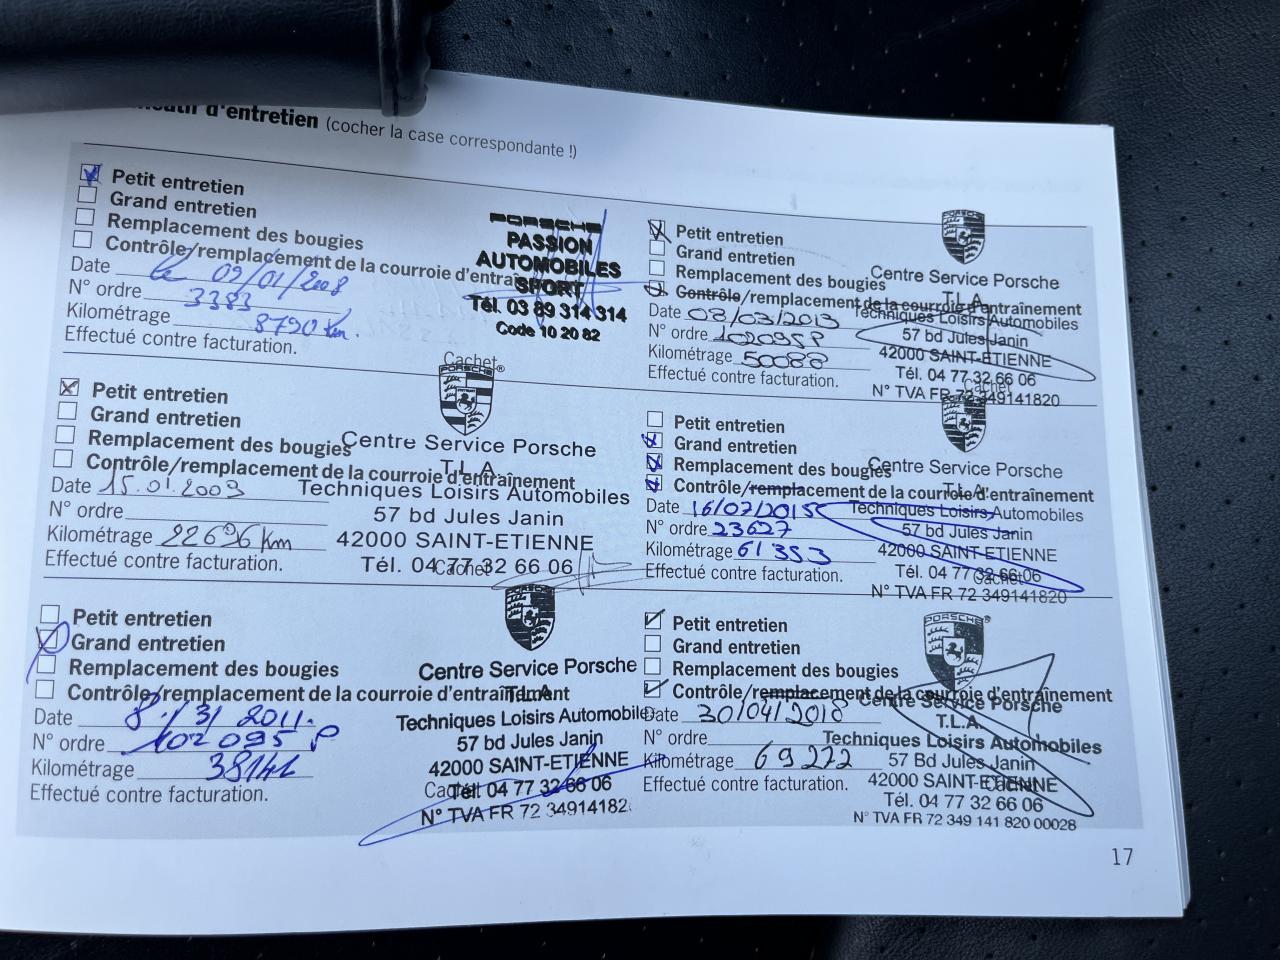 d'entretien (cocher la case correspondante !)
Petit entretien
Grand entretien
Remplacement des bougies
Contrôle/remplacement de la courroie d'entraînement
Date le 09/01/2008
N° ordre 3383
Kilométrage 8790 km.
Effectué contre facturation.
PORSCHE
PASSION
AUTOMOBILES
SPORT
Tél. 03 89 314 314
Code 10 20 82
Cachet
Petit entretien
Grand entretien
Remplacement des bougies
Contrôle/remplacement de la courroie d'entraînement
Date 15.01.2009
N° ordre
Kilométrage 22696 km
Effectué contre facturation.
PORSCHE
Centre Service Porsche
T.L.A
Techniques Loisirs Automobiles
57 bd Jules Janin
42000 SAINT-ETIENNE
Tél. 04 77 32 66 06
Cachet
Petit entretien
Grand entretien
Remplacement des bougies
Contrôle/remplacement de la courroie d'entraînement
Date 8/3/2011.
N° ordre 102095 P
Kilométrage 38141
Effectué contre facturation.
Centre Service Porsche
T.L.A
Techniques Loisirs Automobile
57 bd Jules Janin
42000 SAINT-ETIENNE
Tél. 04 77 32 66 06
Cachet
N° TVA FR 72 34914182
Petit entretien
Grand entretien
Remplacement des bougies
Contrôle/remplacement de la courroie d'entraînement
Date 08/03/2013
N° ordre 102095P
Kilométrage 50088
Effectué contre facturation.
Centre Service Porsche
T.L.A
Techniques Loisirs Automobiles
57 bd Jules Janin
42000 SAINT-ETIENNE
Tél. 04 77 32 66 06
Cachet
N° TVA FR 72 349141820
Petit entretien
Grand entretien
Remplacement des bougies
Contrôle/remplacement de la courroie d'entraînement
Date 16/07/2015
N° ordre 23627
Kilométrage 61353
Effectué contre facturation.
Centre Service Porsche
T.L.A
Techniques Loisirs Automobiles
57 bd Jules Janin
42000 SAINT-ETIENNE
Tél. 04 77 32 66 06
Cachet
N° TVA FR 72 349141820
Petit entretien
Grand entretien
Remplacement des bougies
Contrôle/remplacement de la courroie d'entraînement
Date 30/04/2018
N° ordre
Kilométrage 69272
Effectué contre facturation.
PORSCHE
Centre Service Porsche
T.L.A.
Techniques Loisirs Automobiles
57 Bd Jules Janin
42000 SAINT-ETIENNE
Cachet
Tél. 04 77 32 66 06
N° TVA FR 72 349 141 820 00028
17